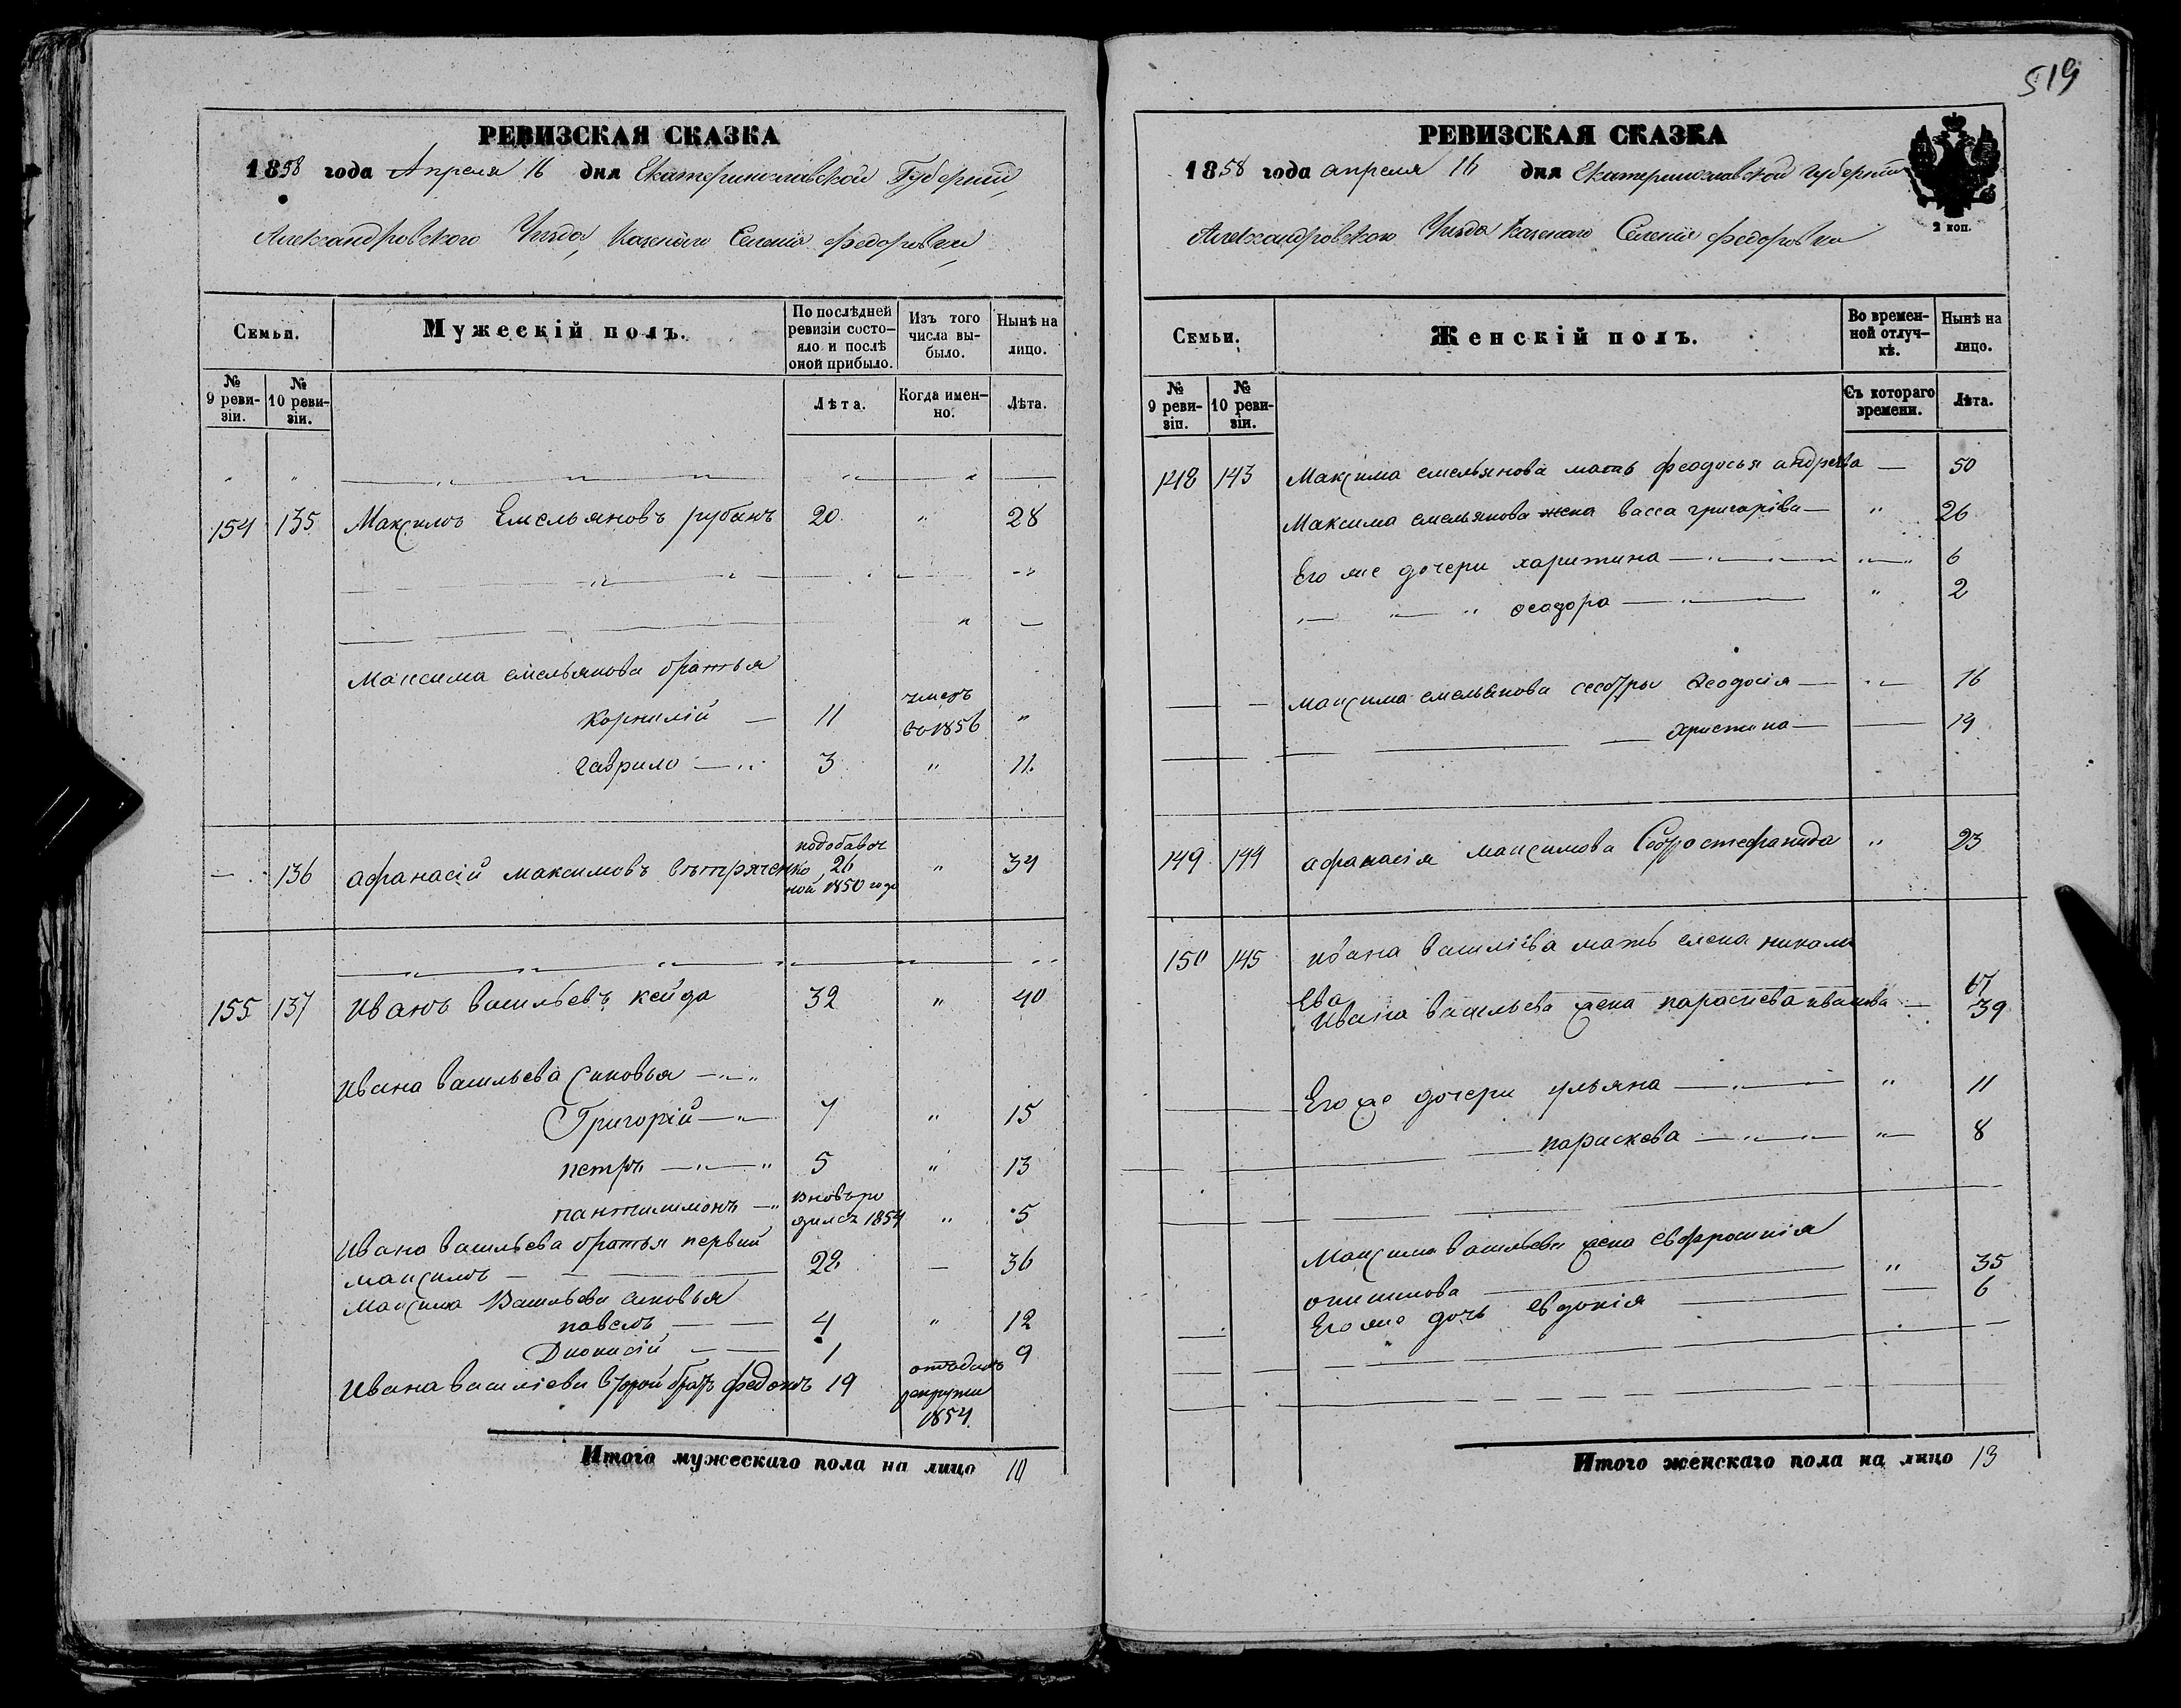 РЕВИЗСКАЯ СКАЗКА
1858 года Апреля 16 дня Екатеринославской Губерніи,
Александровского Уезда, Казенаго Селенія федоровки,
Семьи.
Мужескій полъ.
По послѣдней ревизіи состо-
яло и послѣ оной прибыло.
Изъ того числа вы-
было.
Нынѣ на лицо.
№ 9 реви-
зіи.
№ 10 реви-
зіи.
Лѣта.
Когда имен-
но.
Лѣта.
154 135 Максимъ Емельяновъ рубанъ 20 " 28
Максима емельянова братья
Корнилій — 11 умеръ во 1856 "
гаврило — " 3 " 11
— 136 афанасій максимовъ вътряченко подобавоч 26 ной 1850 года " 34
155 137 Иванъ васильевъ кейда 32 " 40
Ивана васильева синовья — " — "
Григорій — " — 7 " 15
петръ — " — " 5 " 13
пантилимонъ — " вновь ро дилсъ 1854 " 5
Ивана васильева братья первий
максимъ — 22 — 36
Максима Васильева синовья
павелъ — — 4 " 12
Дионисій — — 1 9
Ивана василіева второй братъ федотъ 19 отъданъ рекруты 1854
Итого мужескаго пола на лицо 10
519
РЕВИЗСКАЯ СКАЗКА
1858 года апреля 16 дня Екатеринославской губерніи
Александровского Уезда казенаго Селенія федоровки
2 коп.
Семьи.
Женскій полъ.
Во времен-
ной отлуч-
кѣ.
Нынѣ на лицо.
№ 9 реви-
зіи.
№ 10 реви-
зіи.
Съ котораго времени.
Лѣта.
148 143 Максима емельянова мать феодосья андрева — 50
Максима емельянова жена васса григоріва — " 26
Его же дочери харитина — " — " 6
" — " — " феодора — " — " 2
максима емельянова сестры Феодосія — " — 16
христина — 19
149 144 афанасія максимова Сестра стефанида " 23
150 145 ивана василіева мать елена никола
Ева 67
Ивана васильева жена параскева иванова — 39
Его же дочери ульяна — " — " 11
параскева — " — " — " — 8
Максима васильева жена евфросинія
" 35
Его же дочь евдокія — 6
Итого женскаго пола на лицо 13